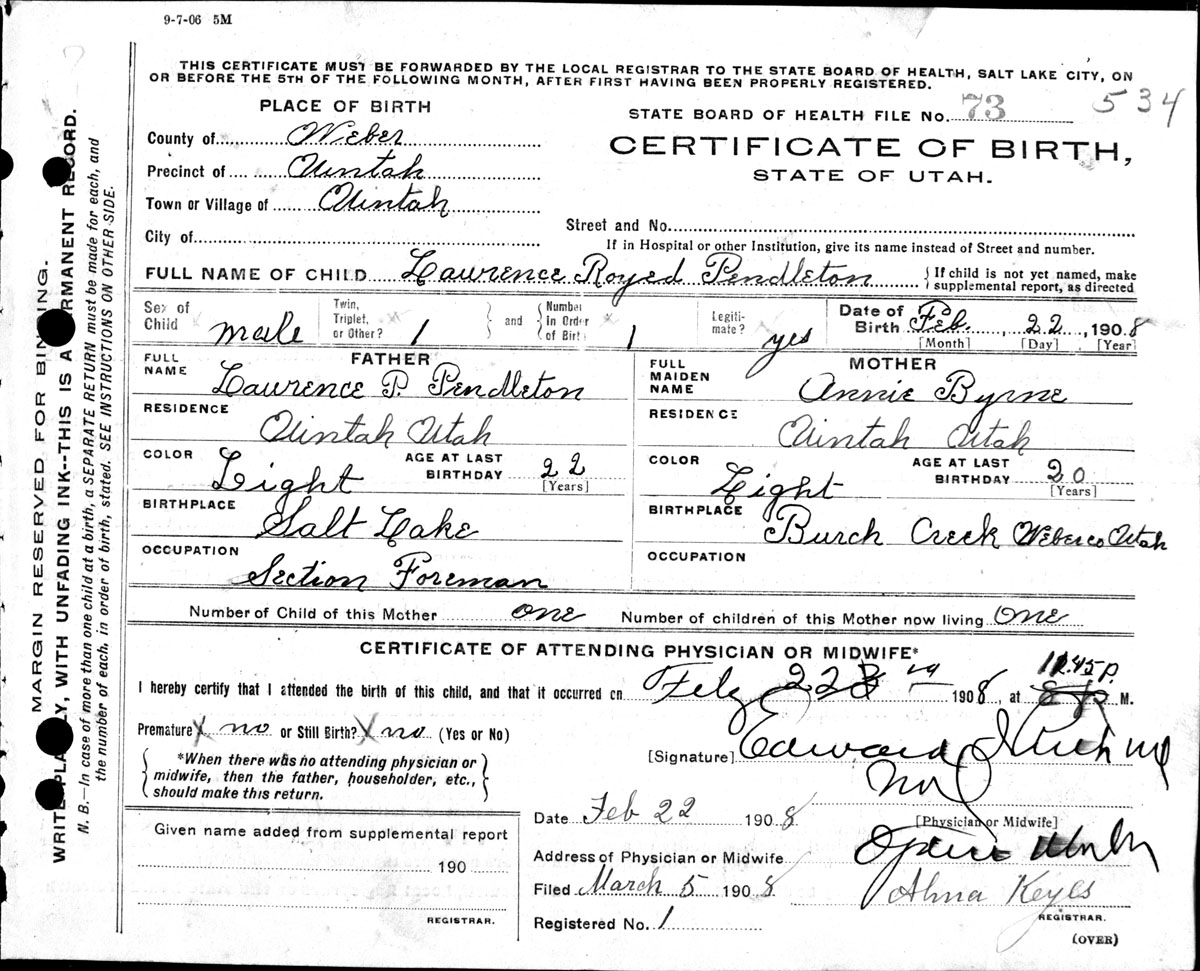 9-7-06 5M
THIS CERTIFICATE MUST BE FORWARDED BY THE LOCAL REGISTRAR TO THE STATE BOARD OF HEALTH, SALT LAKE CITY, ON
OR BEFORE THE 5TH OF THE FOLLOWING MONTH, AFTER FIRST HAVING BEEN PROPERLY REGISTERED.
MARGIN RESERVED FOR BINDING.
WRITE PLAINLY, WITH UNFADING INK--THIS IS A PERMANENT RECORD.
N. B.—In case of more than one child at a birth, a SEPARATE RETURN must be made for each, and
the number of each, in order of birth, stated. SEE INSTRUCTIONS ON OTHER SIDE.
PLACE OF BIRTH
County of Weber
Precinct of Uintah
Town or Village of Uintah
City of
STATE BOARD OF HEALTH FILE No. 73 534
CERTIFICATE OF BIRTH,
STATE OF UTAH.
Street and No.
If in Hospital or other Institution, give its name instead of Street and number.
FULL NAME OF CHILD Lawrence Royed Pendleton { If child is not yet named, make
supplemental report, as directed
Sex of
Child male
Twin,
Triplet,
or Other? x 1
} and {
Number
in Order
of Birth x 1
Legiti-
mate? yes
Date of
Birth Feb. 22, 1908
[Month] [Day] [Year]
FATHER
FULL
NAME Lawrence P. Pendleton
RESIDENCE
Uintah Utah
COLOR Light AGE AT LAST
BIRTHDAY 22
[Years]
BIRTHPLACE Salt Lake
OCCUPATION
Section Foreman
MOTHER
FULL
MAIDEN
NAME Annie Byrne
RESIDENCE
Uintah Utah
COLOR Light AGE AT LAST
BIRTHDAY 20
[Years]
BIRTHPLACE Burch Creek Weber co Utah
OCCUPATION
Number of Child of this Mother one Number of children of this Mother now living one
CERTIFICATE OF ATTENDING PHYSICIAN OR MIDWIFE*
I hereby certify that I attended the birth of this child, and that it occurred on Feby 22 1908, at 11.45 P. M.
Premature x no or Still Birth? x no (Yes or No)
{ *When there was no attending physician or
midwife, then the father, householder, etc.,
should make this return. }
[Signature] Edward
[Physician or Midwife]
Date Feb 22 1908
Address of Physician or Midwife
Filed March 5 1908 Alma Keyes
REGISTRAR.
Registered No. 1
(OVER)
Given name added from supplemental report
190
REGISTRAR.